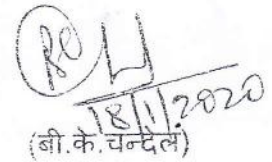 18/1/2020
(बी.के.चन्देल)